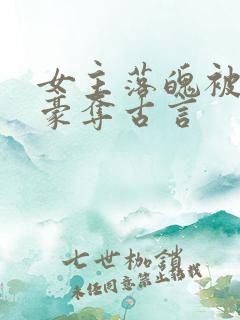 女主落魄被
豪夺古言
七世枷鎖
未经同意禁止转载